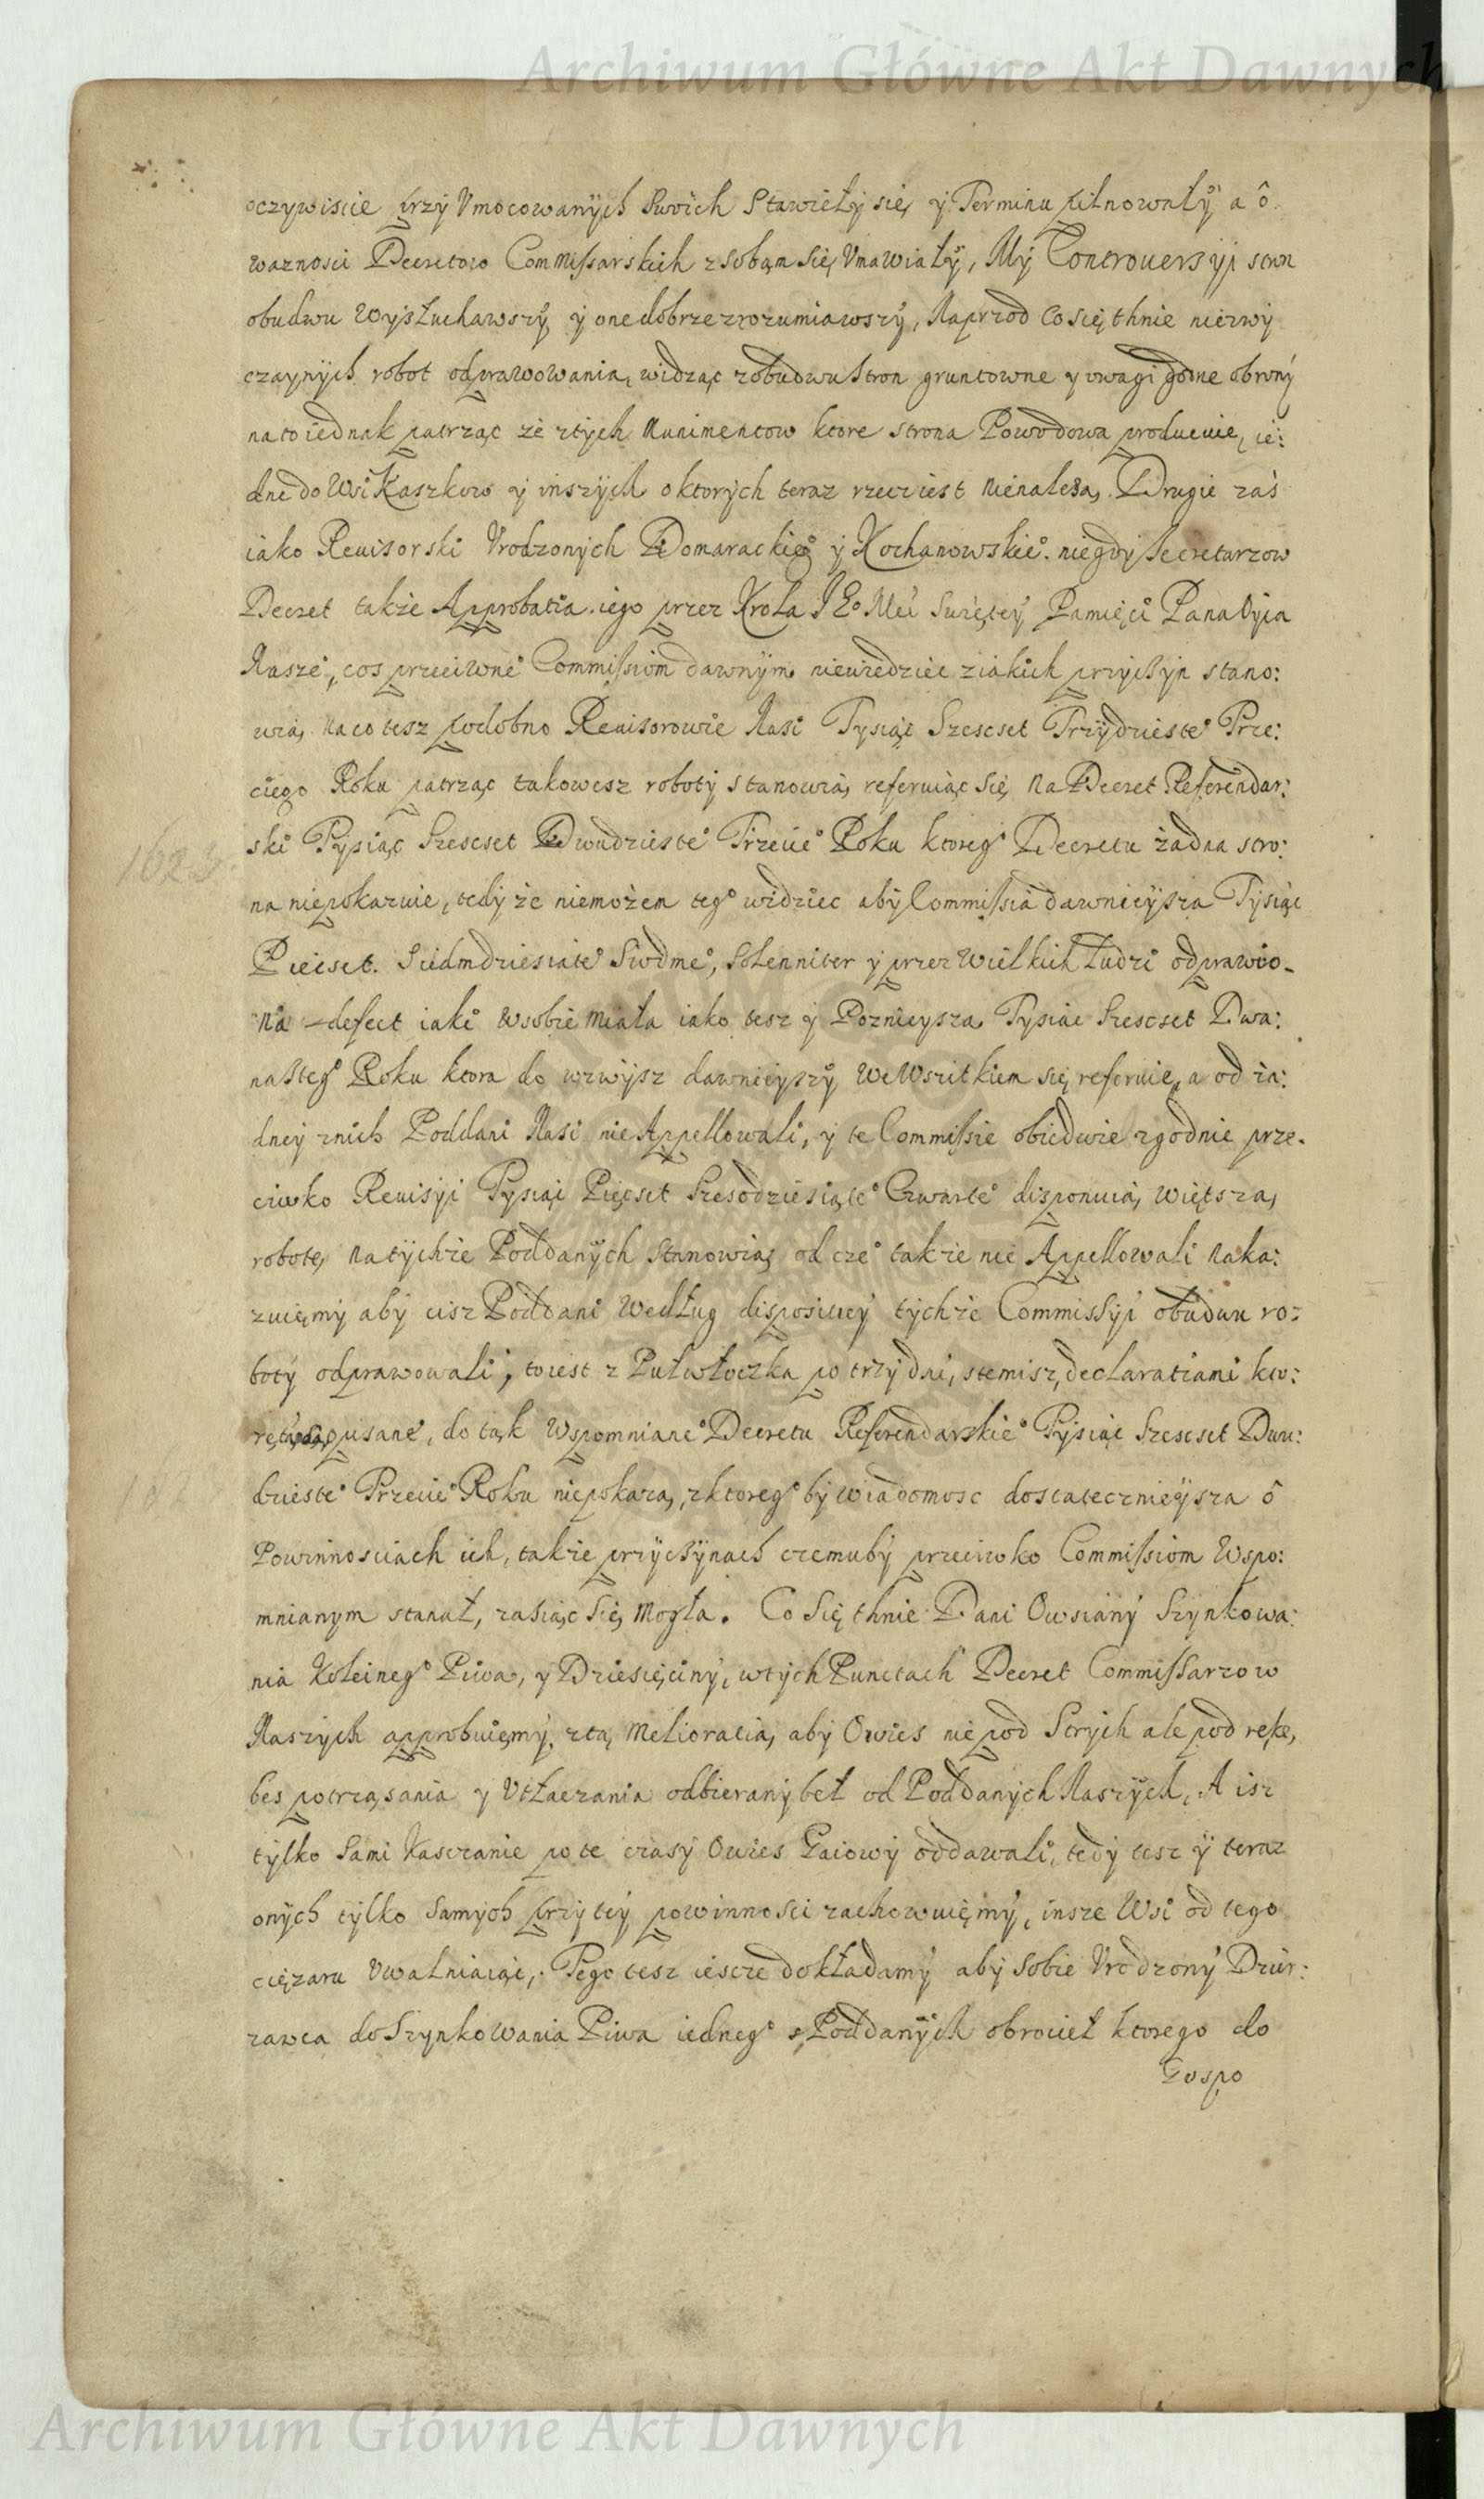 Archiwum Główne Akt Dawnych
oczywiscie przy Vmocowanÿch Swoich Stawieły się, y Terminu pilnowałÿ a ô
waznosci Decretow Commissarskich z sobąm się Vmawiałÿ, Mÿ Controuersÿi stron
obudwu Wysłuchawszÿ y one dobrze zrozumiawszÿ, Naprzod Co się thnie niezwÿ
czaynÿch robot odprawowania, widząc z obudwu stron gruntowne y vwagi godne obronÿ
na to iednak patrząc że z tÿch Munimentow ktore strona Powodowa producuie, ie:
dne do Wsi Kaszkow ÿ inszÿch o ktorÿch teraz rzecz iest nienaleza, Drugie zaś
iako Reuisorski Vrodzonÿch Domarackieg° ÿ Kochanowskie° niegdÿ Secretarzow
Decret także Approbatia iego przez Krola JE° Mci Swiętey Pamięci Pana Oÿca
Nasze°, cos przeciwne° Commissiom dawnÿm niewiedziec z iakich przÿczÿn stano:
wią, na co tesz podobno Reuisorowie Nasi Tysiąc Szescset Trzÿdzieste° Trze:
ciego Roku patrząc takowesz robotÿ stanowią, referuiąc się na Decret Referendar:
1623
ski Tysiąc Szescset Dwudzieste° Trzecie° Roku ktoreg° Decretu żadna stro:
na niepokazuie, tedy że niemożem teg° widziec aby Commissia dawnieÿsza Tysiąc
Piecset Siedmdziesiate° Siodme°, Solenniter y przez Wielkich Ludzi odprawio-
na defect iaki w sobie miała iako tesz y Poznieysza, Tysiac Szescset Dwa:
nasteg° Roku ktora do wzwÿsz dawnieÿszÿ We Wszitkiem się referuie, a od ża:
dneÿ znich Poddani Nasi nie Appellowali, y te Commissie obiedwie zgodnie prze-
ciwko Reuisÿi Tysiąc Pięcset Szesdziesiąte° Czwarte° disponuią, większą,
robotę, na tÿchże Poddanÿch stanowią, od cze° także nie Appellowali naka:
zuięmÿ aby cisz Poddani Według disposicÿ tÿchże Commissÿi obudwu ro:
botÿ odprawowali, to iest z Pułwłoczka po trzÿ dni, stemisz declaratiami kto:
re tąm są opisane, do tąk Wspomniane° Decretu Referendarskie° Tysiąc Szescset Dwu:
dzieste° Trzecie° Roku niepokaza, z ktoreg° bÿ wiadomosc dostatecznieÿsza ô
Powinnosciach ich, także przÿczÿnach czemubÿ przeciwko Commissiom Wspo:
mnianym stanął, zasiąc się mogła. Co się thnie Dani Owsianÿ Szynkowa:
nia Koleineg° Piwa, y Dziesięcinÿ, w tÿch Punctach Decret Commissarzow
Naszych approbuięmÿ, z tą Melioratią, aby Owies nie pod Strych ale pod rękę,
bes potrząsania y Vtłaczania odbieranÿ beł od Poddanÿch Naszÿch, A isz
tylko Sami Kasczanie po te czasÿ Owies Gaiowÿ oddawali, tedy tesz ÿ teraz
onÿch tylko samÿch przy teÿ powinnosci zachowuięmÿ, insze Wsi od tego
ciężaru Vwalniaiąc, Tego tesz iescze dokładamÿ aby sobie Vrodzonÿ Dzier:
zawca do Szynkowania Piwa iedneg° s Poddanÿch obrocieł ktorego do
Gospo
Archiwum Główne Akt Dawnych